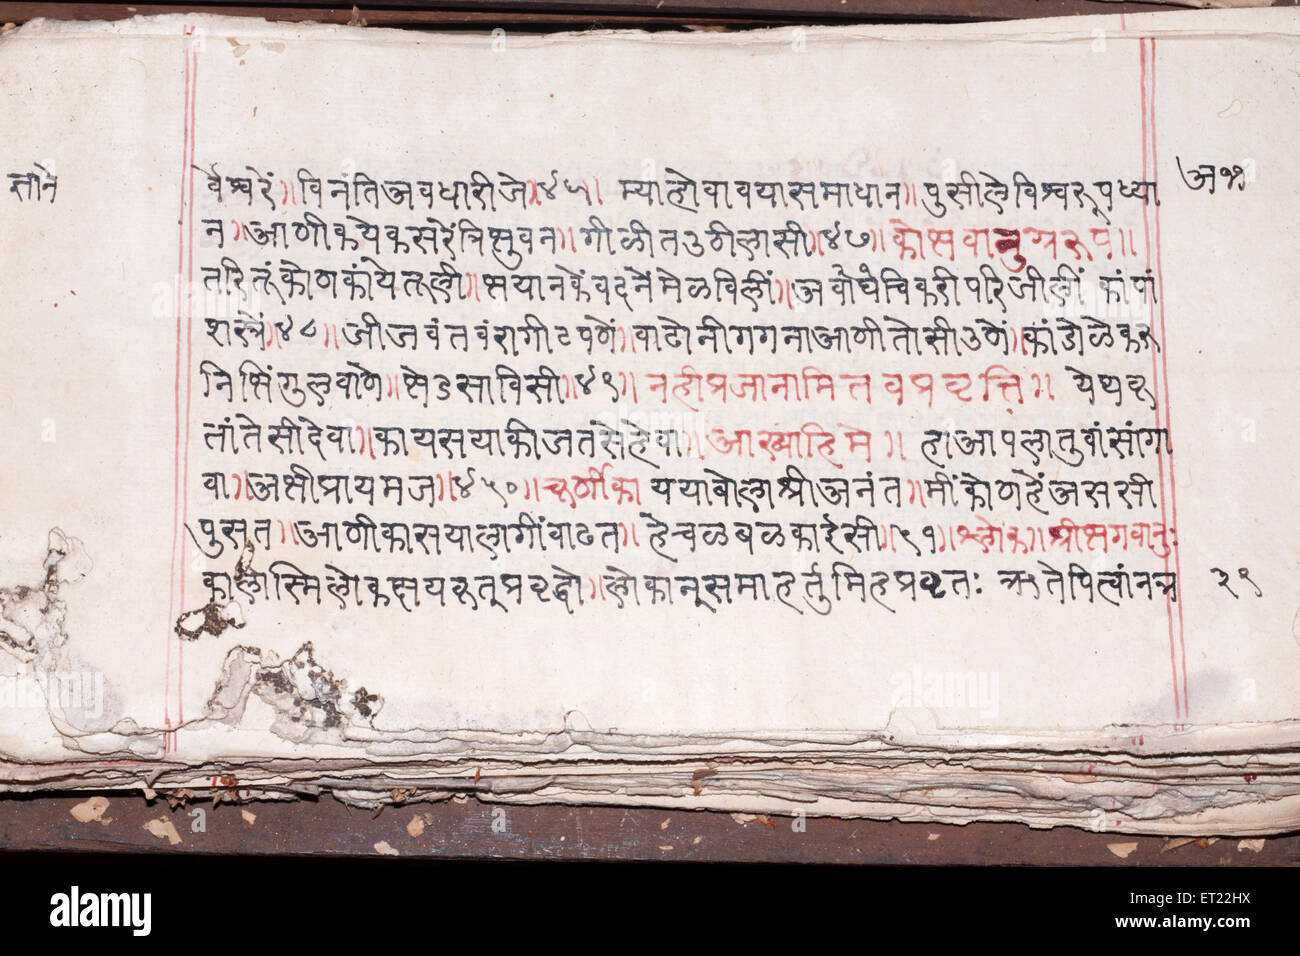 ज्ञाने
र्वेश्वरें॥विनंतिअवधारीजे॥४५६॥ म्यात्होवावयासमाधान॥पुसीलेविश्वरूपध्या अ११
न॥आणीकयेकसरेंत्रिभुवन॥गीळीतउठीलासी॥४७॥कोभवानुग्ररूपं॥
तरितूंकोणकांयेतूलीं॥भयानकेंवदनेंमेळविलीं॥अवोघेचिकरीपरिजीलीं कांपां
शस्त्रें॥४८॥जीजवंतवंरागीटपणें॥वाढोनीगगनाआणीतोसीउणें॥कांडोळेकरू
निभिंगुलवाणे॥भेडसाविसी॥४९॥नहीप्रजानामितवप्रवृत्तिं॥ येथकृ
तांतेसीदेवा॥कायसयाकीजतसेहेवा॥आख्याहिमे॥ हाआपलातुवांसांगा
वा॥अभीप्रायमज॥४५०॥चूर्णीका ययाबोलाश्रीअनंत॥मींकोणहेंअससी
पुसत॥आणीकासयालागींवाढत॥हेचळबळकाईसी॥५१॥श्लोक॥श्रीभगवानु:
कालोस्मिलोकक्षयकृत्प्रवृद्धो॥लोकानूसमाहर्तुमिहप्रवृतः ऋतेपित्वांनन्न २९
alamy
alamy
Image ID: ET22HX
www.alamy.com